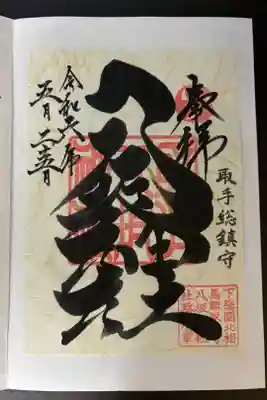 奉拝
取手総鎮守
八坂神社
令和六年
五月二五日
下総國北相
馬郡取手
八坂神社